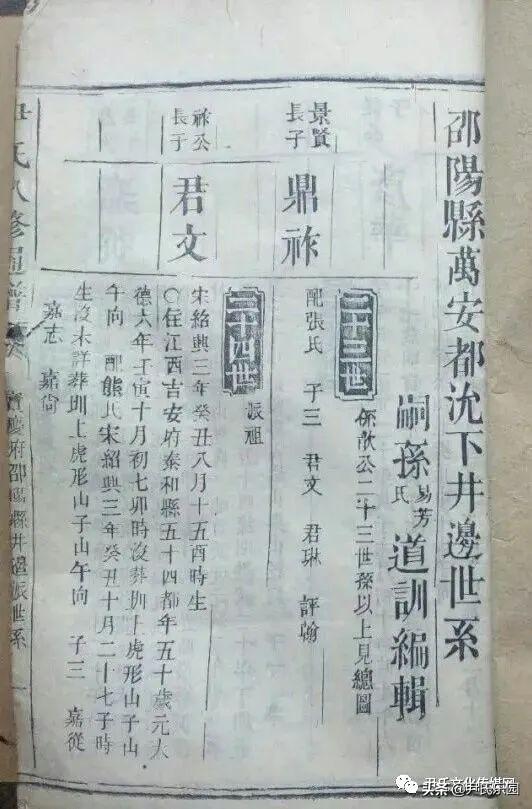 邵陽縣萬安都沇下井邊世系
嗣孫 易芳氏 道訓編輯
景賢長子
鼎祚
二十三世
係散公二十三世孫以上見總圖
配張氏 子三 君文 君琳 評翰
祚公長子
君文
二十四世
派祖
宋紹興三年癸丑八月十五酉時生
○住江西吉安府泰和縣五十四都年五十歲元大
德六年壬寅十月初七卯時沒葬圳上虎形山子山
午向 配熊氏宋紹興三年癸丑十月二十七子時
生沒未詳葬圳上虎形山子山午向 子三 嘉從
嘉志 嘉尙
氏八修通譜 寶慶府邵陽縣井邊派世系 一
尹氏文化传媒网
头条@尹氏乐园